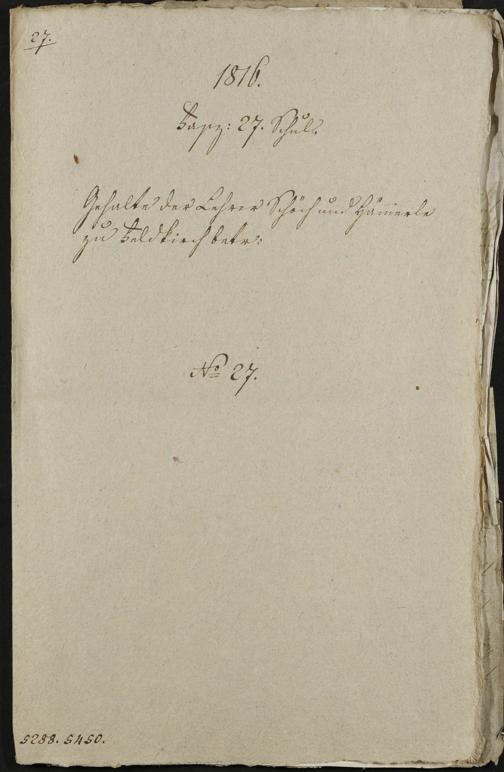 27.
1816.
Fasz: 27. Schul.
Gehalte der Lehrer Schöch und Hämerle
zu Feldkirch betr:
No 27.
5288. 5450.